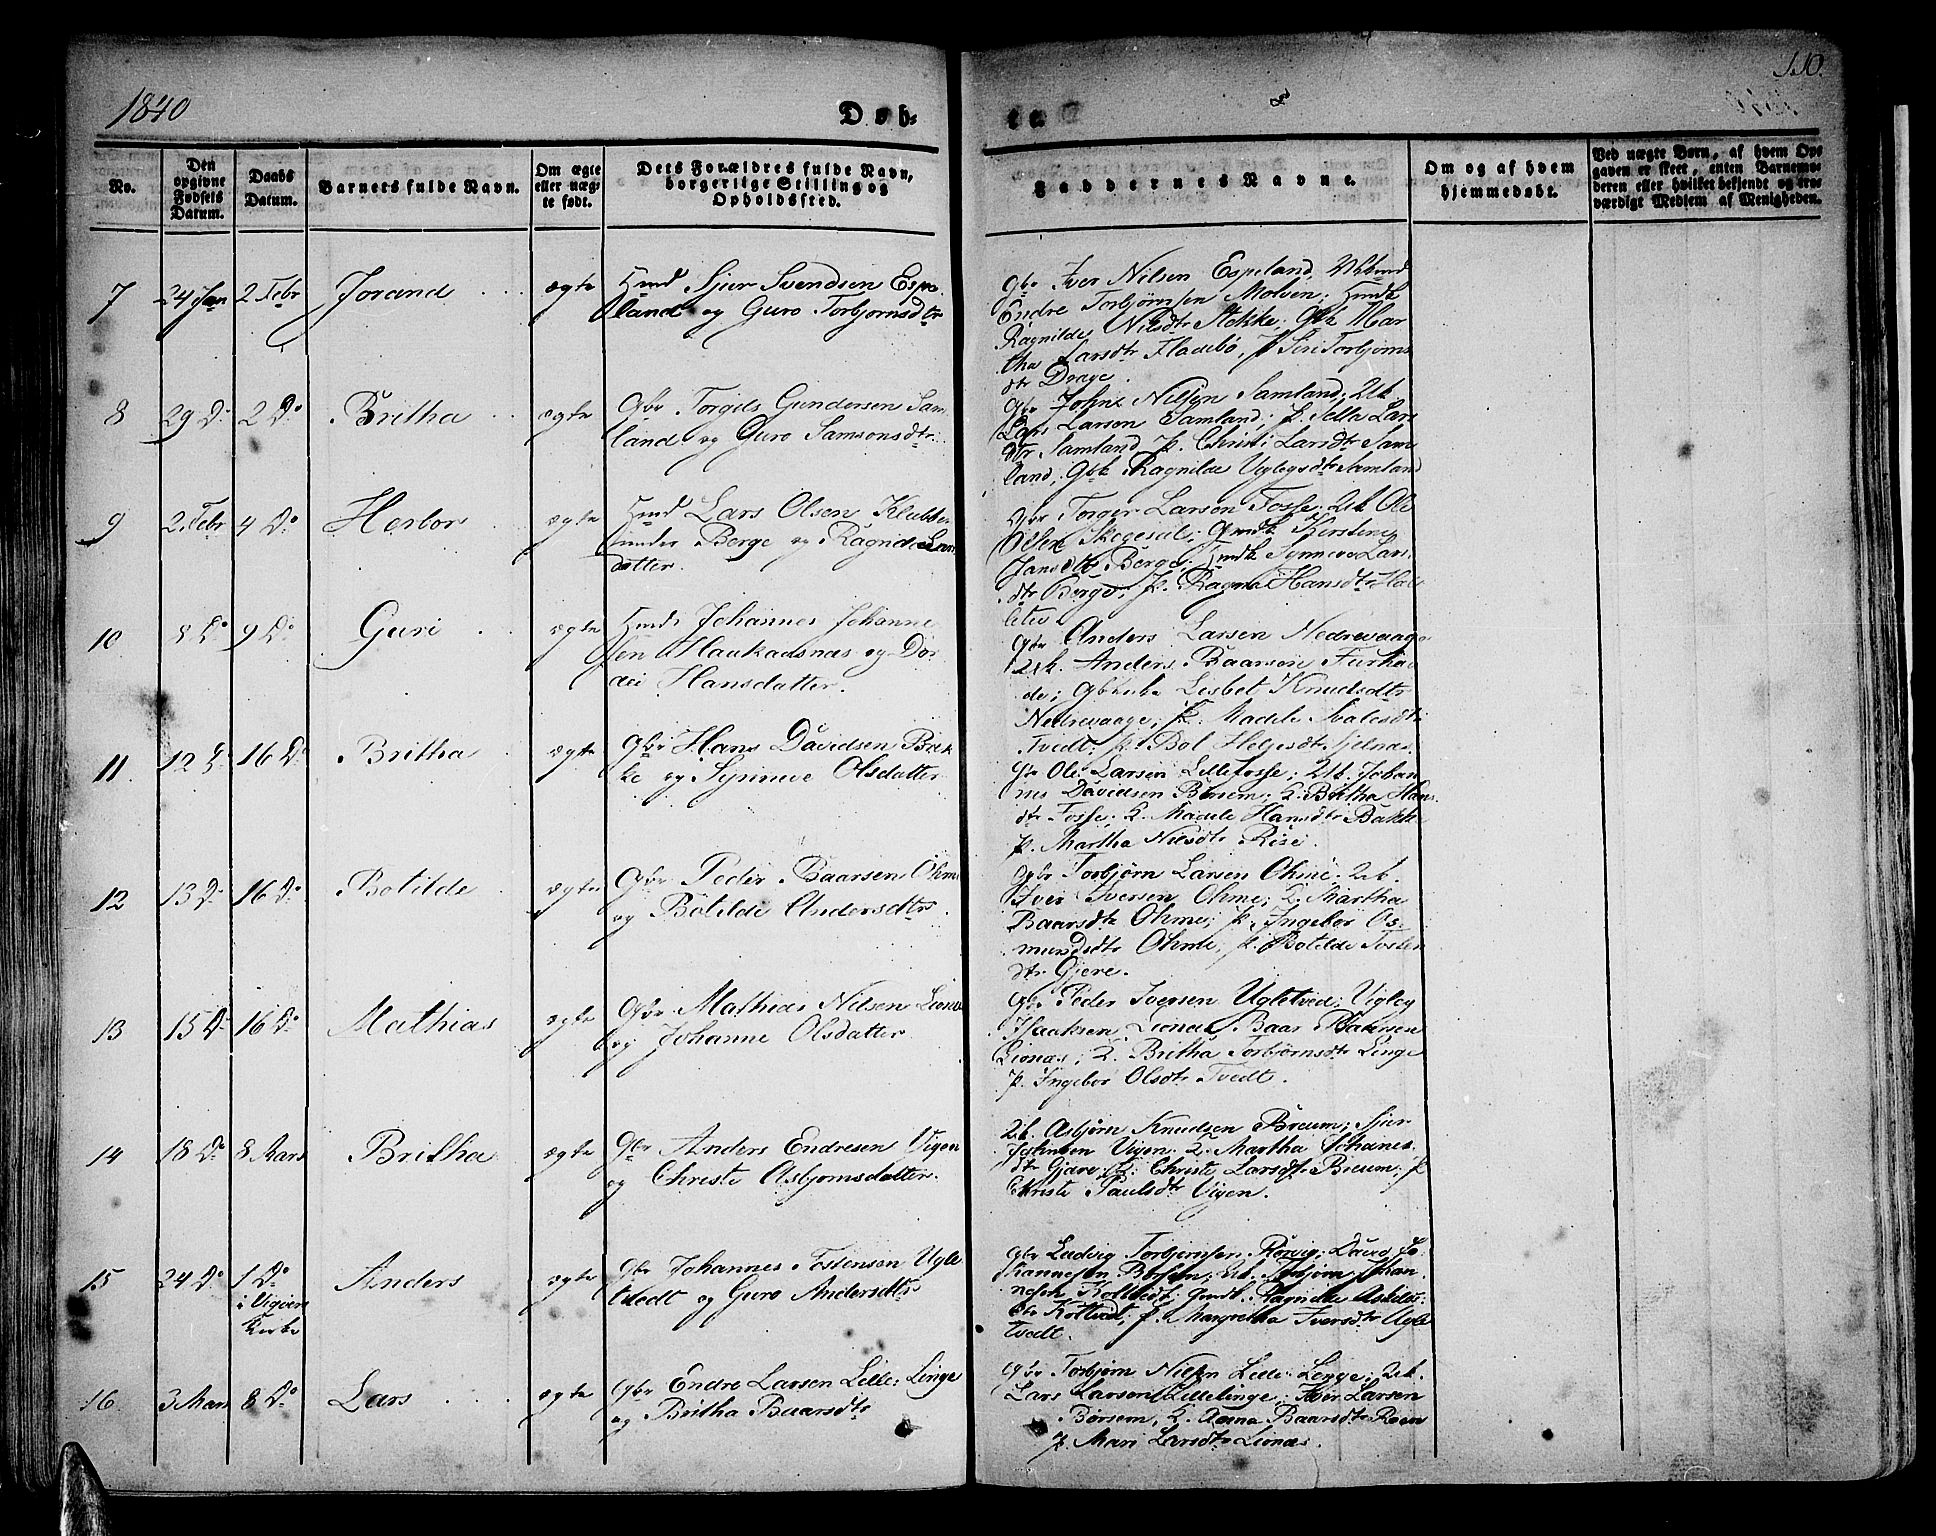 1840
Døb-
te
110.
No.
Den opgivne Fødsels Datum.
Daabs Datum.
Barnets fulde Navn.
Om ægte eller uægte født.
Dets Forældres fulde Navn, borgerlige Stilling og Opholdssted.
Faddernes Navne.
Om og af hvem hjemmedøbt.
Ved uægte Børn, af hvem Opgaven er skeet, enten Barnemoderen eller hvilket bekjendt og troværdigt Medlem af Menigheden.
7 24 Jan 2 Febr Jorand ægte
Hmd Sjur Svendsen Espe
land og Guro Torbjornsdtr
Gbr Iver Nilsen Espeland,
Endre Torbjørnsen Molven; Hmdk
Ragnilde Nilsdtr Stekke; Gbk Mar
tha Larsdtr Fladebø, p Siri Torbjørns
dtr Drage.
8 29 Do 2 Do Britha ægte
Gbr Torgils Gundersen Sam
land og Guro Samsonsdtr
Gbr Johns Nilsen Samland, Uk
Lars Larsen Samland; p. Sella Lars
dtr Samland p. Christi Larsdtr Sam
land, Gbk Ragnilde Viglegsdtr Samland
9 2 Febr 4 Do Herbor ægte
Hmd Lars Olsen
under Berge og Ragnilde Lars
datter.
Gbr Torger Larsen Fosse; Uk Ole
Olsen Skogesal; Gmdk Kirstene
Jansdtr Berge; Hmdk Synneve Lars
dtr Berge; p. Ragna Hansdtr
10 8 Do 9 Do Guri ægte
Hmd Johannes Johanne
sen Haukaasnæs og Dor
dei Hansdatter.
Gbr Anders Larsen Nedrevaage
Uk. Anders Baarson Furhau
de; Lisbet Knudsdtr
Nedrevaage; p. Madele
Tvedt; p. Bol Helgesdtr
11 12 Do 16 Do Britha ægte
Gbr Hans Davidsen Bak
ke og Synneve Olsdatter
Gbr Ole Larsen Lillefosse; Uk. Johan
nes Davidsen Børsem; K. Britha Hans
dtr Fosse; K. Madele Hansdtr Bakke
p. Martha Nilsdtr Rise.
12 13 Do 16 Do Botilde ægte
Gbr Peder Baarsen Ohme
og Botilde Andersdtr.
Gbr Torbjørn Larsen Ohme; Uk.
Iver Iversen Ohme; K. Martha
Baarsdtr Ohme; p. Ingebor As
mundsdtr Ohme, p. Botilde Tosten
dtr Gjere.
13 15 Do 16 Do Mathias ægte
Gbr Mathias Nilsen Lionæs
og Johanne Olsdatter
Gbr Peder Iversen Ugletved; Vigleg
Isaaksen Lionæs Baar Baarsen
Lionæs; K. Britha Torbjørnsdtr Linge
p. Ingebor Olsdtr Tvedt.
14 18 Do 8 Mars Britha ægte
Gbr Anders Endresen Vigen
og Christi Asbjornsdatter.
Uk. Asbjørn Knudsen Breum; Sjur
Johnsen Vigen K. Martha Johanes
dtr Gjære K. Christi Larsdtr Breum; p
Christi Paulsdtr Vigen.
15 24 Do 1 Do
i Vigøers
Kirke
Anders ægte
Gbr Johannes Tostensen Ugle
tvedt og Guro Andersdtr
Gbr Ludvig Torbjørnsen Rørvig; David Jo
hannesen Børsem; Uk. Torbjørn Johan
nesen Koltvedt; Gmdk. Ragnilde
dtr Koltvedt, p. Margretha Iversdtr Ugle
tvedt.
16 3 Mars 8 Do Lars ægte
Gbr Endre Larsen Lille: Linge
og Britha Baarsdtr
Gbr Torbjørn Nilsen Lille: Linge; Uk.
Lars Larsen Lillelinge; Iver Larsen
Børsem, K. Anna Baarsdtr
p. Mari Larsdtr Lionæs.